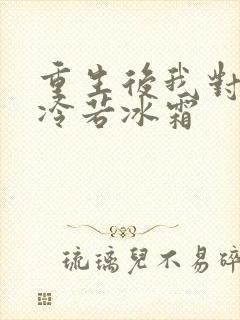 重生後我對
冷若冰霜
琉璃兒不易碎